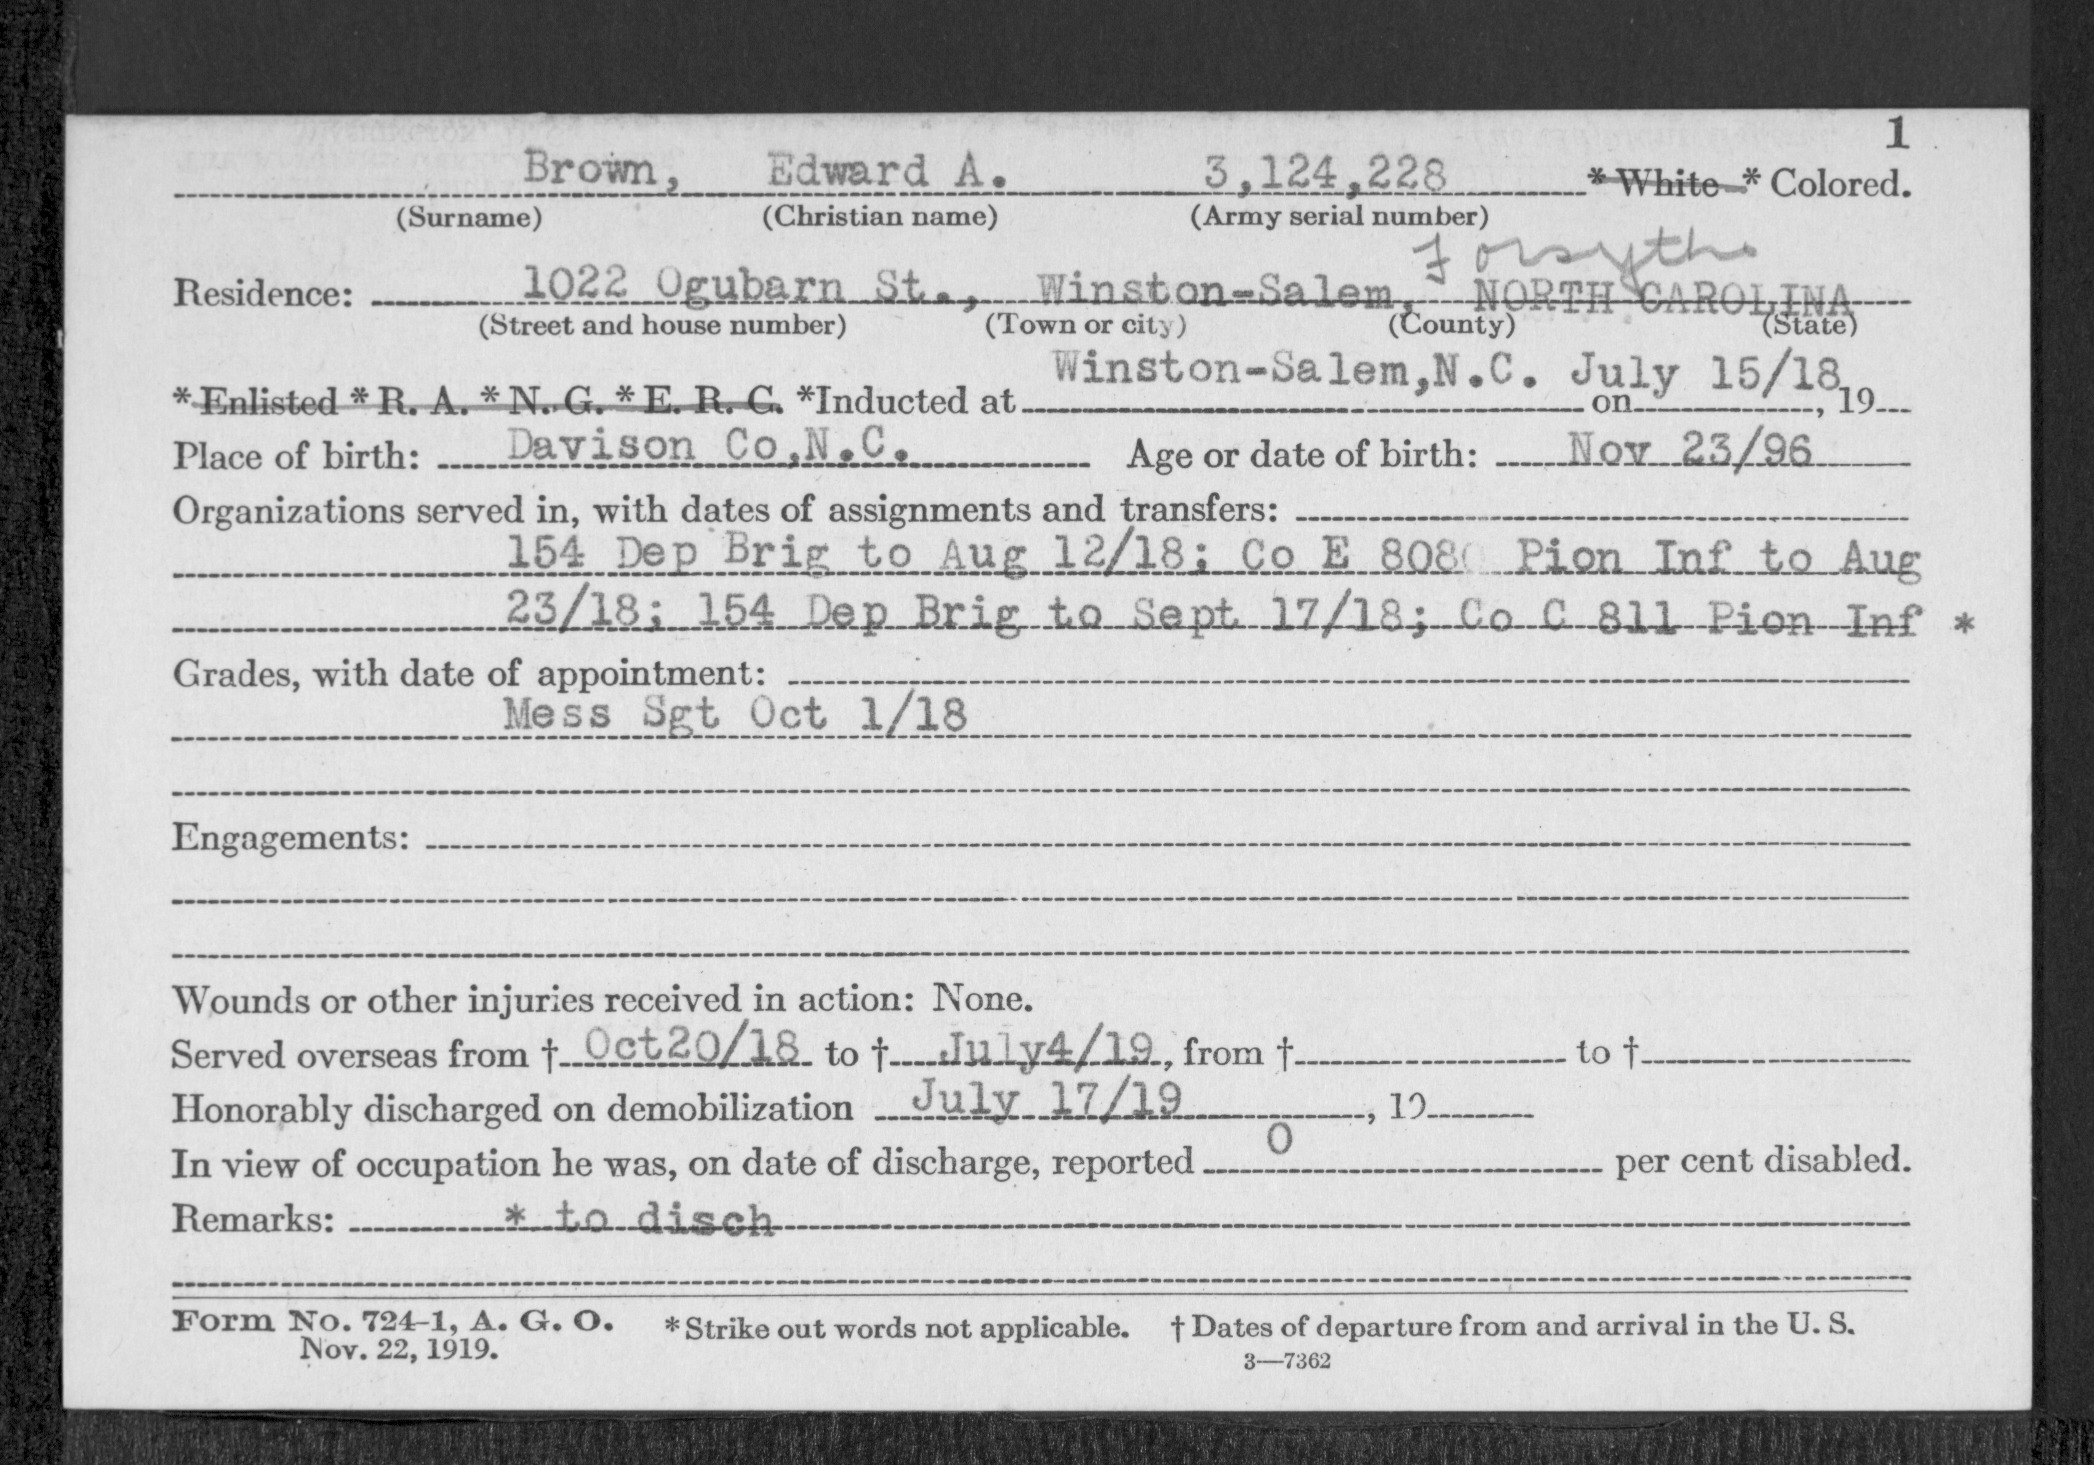 1
Brown, Edward A. 3,124,228 * White * Colored.
(Surname) (Christian name) (Army serial number)
Forsythe
Residence: 1022 Ogubarn St., Winston-Salem, NORTH CAROLINA
(Street and house number) (Town or city) (County) (State)
Winston-Salem,N.C. July 15/18
* Enlisted * R. A. * N. G. * E. R. C. *Inducted at on , 19
Place of birth: Davison Co,N.C. Age or date of birth: Nov 23/96
Organizations served in, with dates of assignments and transfers:
154 Dep Brig to Aug 12/18; Co E 808 Pion Inf to Aug
23/18; 154 Dep Brig to Sept 17/18; Co C 811 Pion Inf *
Grades, with date of appointment:
Mess Sgt Oct 1/18
Engagements:
Wounds or other injuries received in action: None.
Served overseas from † Oct20/18 to † July4/19, from † to †
Honorably discharged on demobilization July 17/19 , 19
In view of occupation he was, on date of discharge, reported 0 per cent disabled.
Remarks: * to disch
Form No. 724-1, A. G. O. * Strike out words not applicable. † Dates of departure from and arrival in the U. S.
Nov. 22, 1919. 3—7362